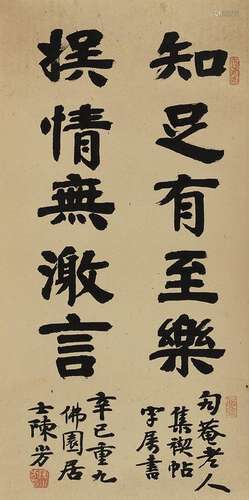 知足有至樂
菴老人
集禊帖
字屬書
情無激言
辛巳重九
佛園居
士陳